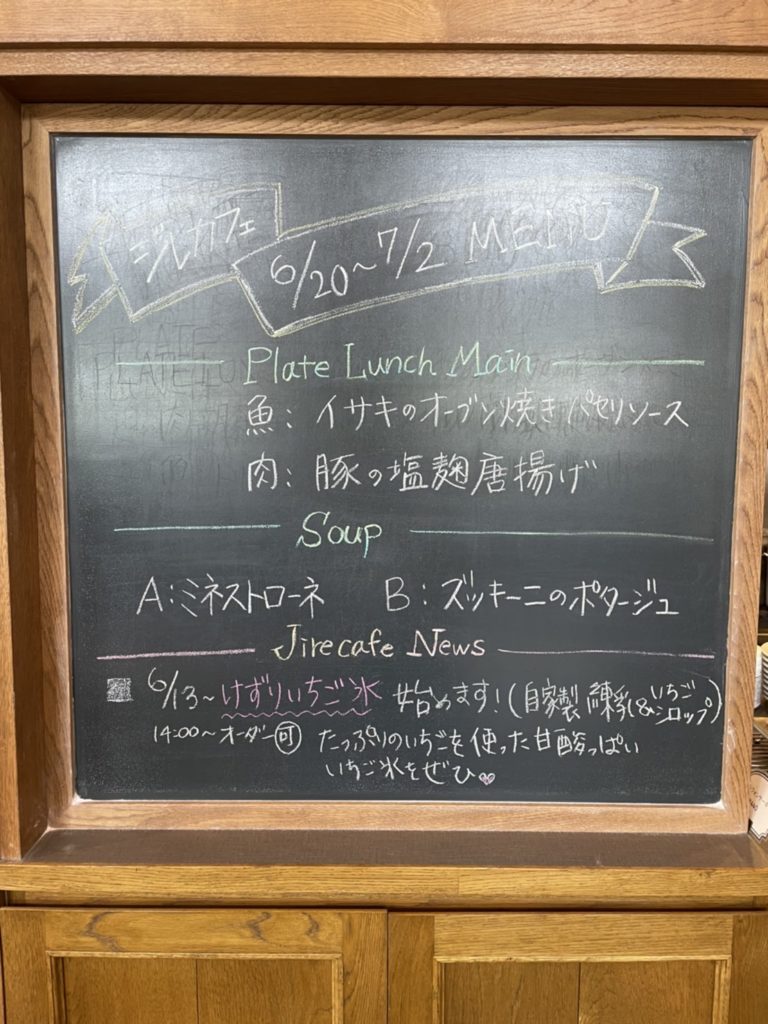 ジルカフェ
6/20～7/2 MENU
Plate Lunch Main
魚: イサキのオーブン焼き パセリソース
肉: 豚の塩麹唐揚げ
Soup
A: ミネストローネ B: ズッキーニのポタージュ
Jirecafe News
6/13～けずりいちご氷 始めます!(自家製 練乳&いちごシロップ)
14:00～オーダー可 たっぷりのいちごを使った甘酸っぱい
いちご氷をぜひ♥